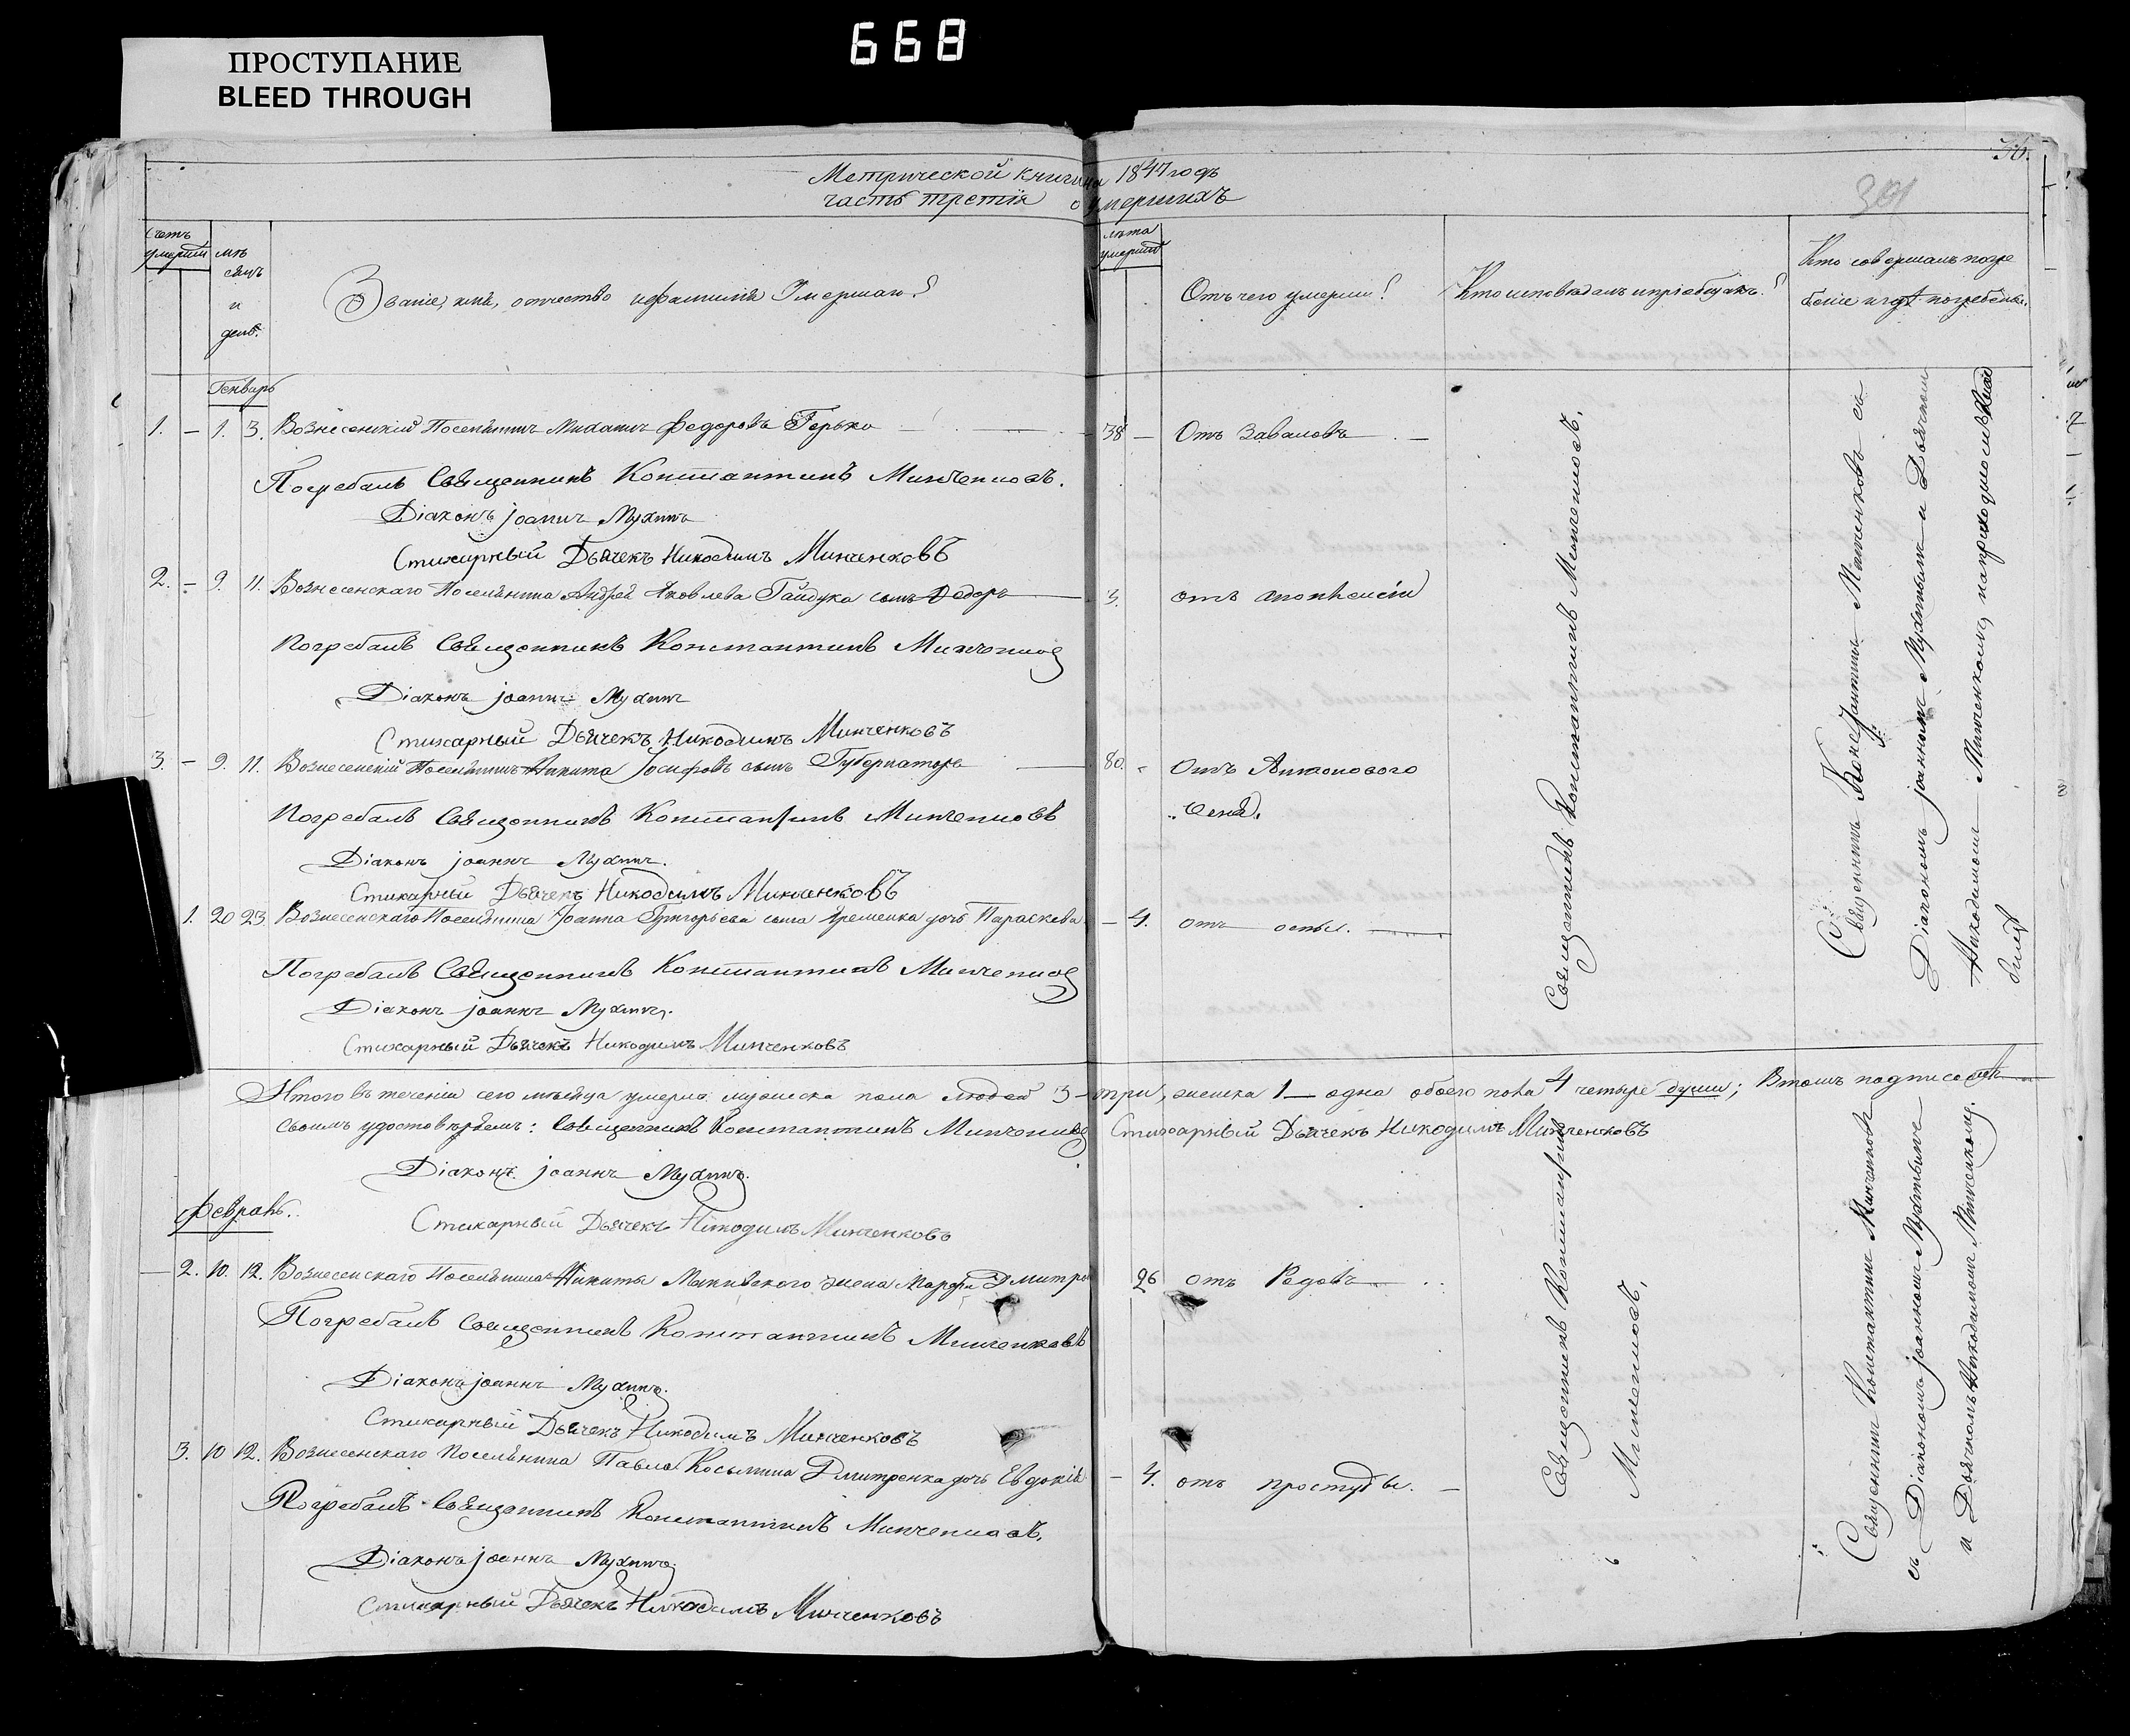 668
ПРОСТУПАНИЕ
BLEED THROUGH
36.
301
Метрической книги на 1847 годъ
часть третія о умершихъ
Счетъ умерших
мѣсяцъ и день.
Званіе, имя, отчество и фамилія Умершаго?
лѣта умершихъ
Отъ чего умерши?
Кто исповѣдалъ и пріобщалъ?
Кто совершалъ погребеніе и гдѣ погребены.
Генварь
1. – 1. 3. Вознесенскій Поселянинъ Михаилъ Федоровъ Горько – 38 – Отъ заваловъ –
Погребалъ Священникъ Константинъ Минченковъ.
Діаконъ Іоаннъ Мухинъ
Стихарный Дьячекъ Никодимъ Минченковъ
2. – 9. 11. Вознесенскаго Поселянина Андрей Яковлева Гайдука сынъ Федоръ 3. отъ апоплексіи
Погребалъ Священникъ Константинъ Минченков
Діаконъ Іоаннъ Мухинъ
Стихарный Дьячекъ Никодимъ Минченковъ
3. – 9. 11. Вознесенскій Поселянинъ Никита Іосифовъ сынъ Губернаторъ 80. Отъ Антонового
Огня.
Погребалъ Священникъ Константинъ Минченковъ
Діаконъ Іоаннъ Мухинъ.
Стихарный Дьячекъ Никодимъ Минченковъ
1. 20 23. Вознесенскаго Поселянина Іоанна Григорьева сына Яременка дочь Параскева – 4. отъ оспы.
Погребалъ Священникъ Константинъ Минченков
Діаконъ Іоаннъ Мухинъ.
Стихарный Дьячекъ Никодимъ Минченковъ
Священникъ Константинъ Минченковъ,
Священникъ Константинъ Минченковъ съ
Діакономъ Іоанномъ Мухинымъ и Дьячкомъ
Никодимомъ Минченкомъ, на приходскомъ
Итого въ теченіи сего мѣсяца умерло мужеска пола людей 3 – три, женска 1 – одна обоего пола 4 четыре души; Въ томъ подписомъ
своимъ удостовѣряемъ: Священникъ Константинъ Минченков Стихарный Дьячекъ Никодимъ Минченковъ
Діаконъ Іоаннъ Мухинъ.
Стихарный Дьячекъ Никодимъ Минченковъ
Февраль.
– 2. 10. 12. Вознесенскаго Поселянина Никиты Макивского жена Марфа Дмитре 26 отъ Родовъ
Погребалъ Священникъ Константинъ Минченковъ
Діаконъ Іоаннъ Мухинъ.
Стихарный Дьячекъ Никодимъ Минченковъ
3. 10 12. Вознесенскаго Поселянина Павла Косьмина Дмитренка дочь Евдокія – 4. отъ простуды. –
Погребалъ Священникъ Константинъ Минченковъ,
Діаконъ Іоаннъ Мухинъ.
Стихарный Дьячекъ Никодимъ Минченковъ
Священникъ Константинъ
Минченковъ,
Священникъ Константинъ Минченковъ
съ Діакономъ Іоанномъ Мухинымъ
и Дьячкомъ Никодимомъ Минченкомъ.